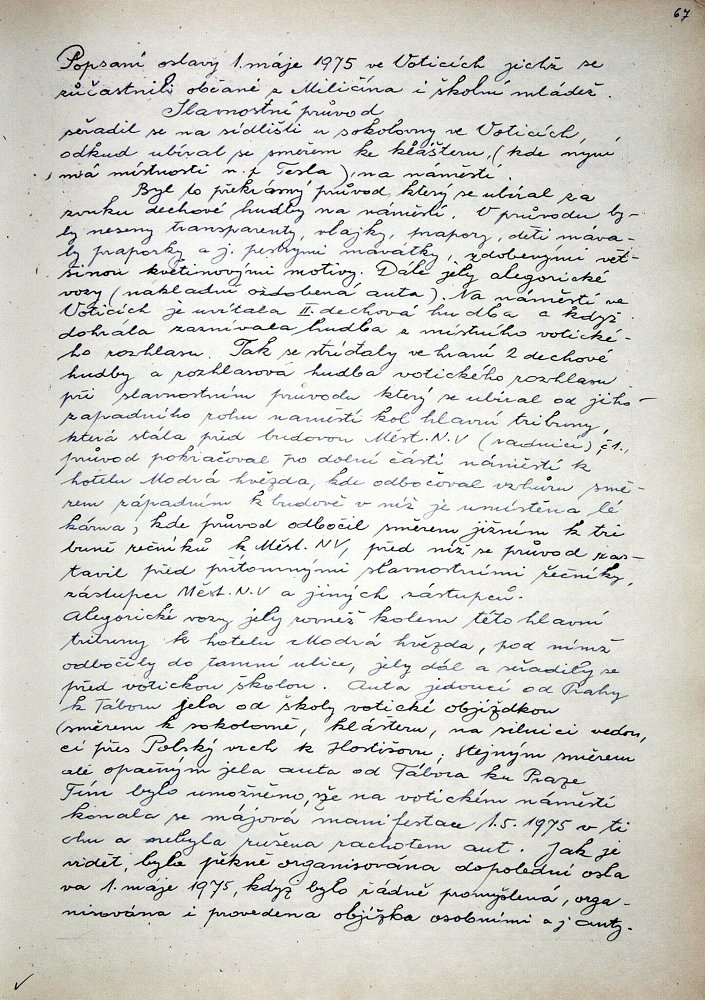 67
Popsaní oslavy 1. máje 1975 ve Voticích jichž se
zůčastnili občané z Miličína i školní mládež.
Slavnostní průvod
seřadil se na sídlišti u sokolovny ve Voticích,
odkud ubíral se směrem ke klášteru, (kde nyní
má místnosti n. p. Tesla), na náměstí.
Byl to překrásný průvod, který se ubíral za
zvuku dechové hudby na náměstí. V průvodu by-
ly neseny transparenty, vlajky, prapory, děti máva-
ly praporky a j. pestrými mávátky, zdobenými vět-
šinou květinovými motivy. Dále jely alegorické
vozy (nakladní ozdobená auta). Na náměstí ve
Voticích je uvítala II. dechová hudba a když
dohrála zaznívala hudba z místního votické-
ho rozhlasu. Tak se střídaly ve hraní 2 dechové
hudby a rozhlasová hudba votického rozhlasu
při slavnostním průvodu který se ubíral od jiho-
západního rohu naměstí kol hlavní tribuny,
která stála před budovou Měst. N.V (radnicí) č 1.,
průvod pokračoval po dolní části náměstí k
hotelu Modrá hvězda, kde odbočoval vzhůru smě-
rem západním k budově v níž je umístěna lé
kárna, kde průvod odbočil směrem jižním k tri
buně řečníků k Měst. NV, před níž se průvod zas-
tavil před přítomnými slavnostními řečníky,
zástupci Měst. N.V a jiných zástupců.
Alegorické vozy jely rovněž kolem této hlavní
tribuny k hotelu Modrá hvězda, pod nímž
odbočily do tamní ulice, jely dál a seřadily se
před votickou školou. Auta jedoucí od Prahy
k Táboru jela od školy votické objížďkou
(směrem k sokolovně, klášteru, na silnici vedou,
cí přes Polský vrch k Hostišovu; stejným směrem
ale opačným jela auta od Tábora ku Praze
Tím bylo umožněno, že na votickém náměstí
konala se májová manifestace 1.5.1975 v ti
chu a nebyla rušena rachotem aut. Jak je
vidět, byla pěkně organisována dopolední osla
va 1. máje 1975, když bylo řádně promyšlená, orga-
nisována i provedena objížka osobními a j auty.